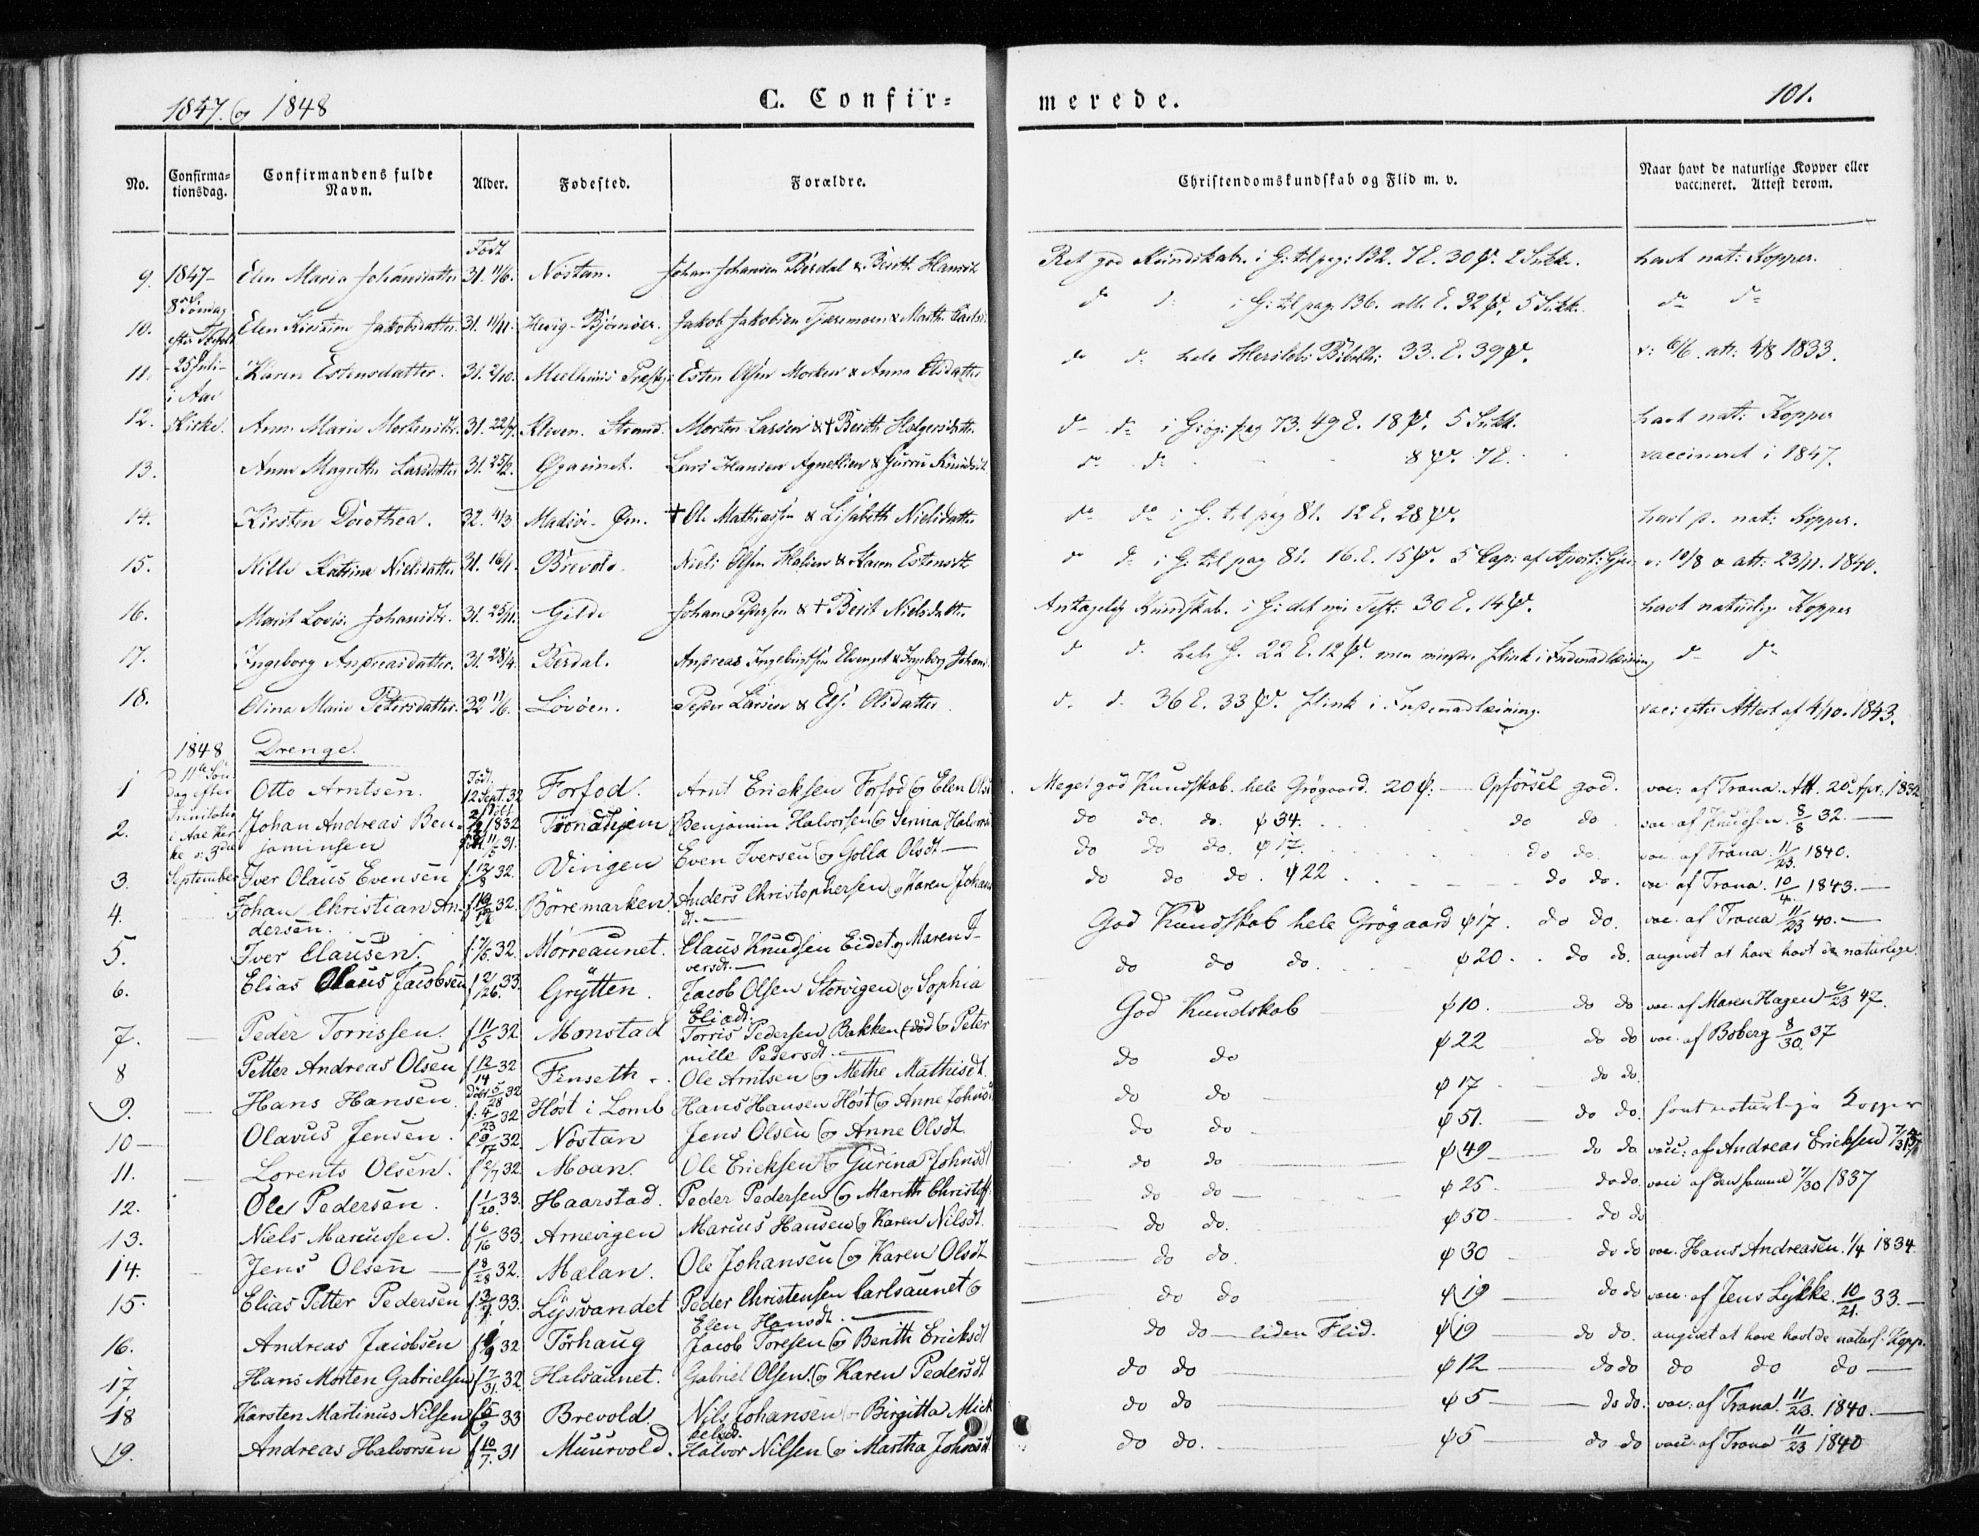 1847. og 1848
C. Confir=
merede.
101.
No.
Confirma=
tionsdag.
Confirmandens fulde
Navn.
Alder.
Fødested.
Forældre.
Christendomskundskab og Flid m. v.
Naar havt de naturlige Kopper eller
vaccineret. Attest derom.
Født
9. 1847- Elen Maria Johansdatter 31. 11/6. Nostan. Johan Johansen Berdal & Berith Hansdt. Ret god Kundskab. i G: til pag: 132. 7 E. 30 ψ. 2 Sukk. havt nat: Kopper.
8de Søndag
10. Elen Kirstine Jakobsdatter. 31. 11/11. Hevig-Bjørnøer. Jakob Jakobsen & Marth d: d: i G: til pag. 136. att. E. 32 ψ. 5 Sukk. do do
11. 25 Juli Karen Estensdatter. 31. 2/10. Melhuus Præstgj: Esten Olsen Morken & Anna Olsdatter d: d: hele 33. E. 39 ψ. v: 6/6. att: 4/8 1833.
i Aae
12. Kirke. Ann Marie Mortensdt. 31. 22/7. Kleven. Strand. Morten Larsen & † Berith Holgersdatter. d: d: i pag 73. 49 E. 18 ψ. 5 Sukk. havt nat: Kopper
13. Anne Magrethe Larsdatter 31. 25/2. Opaunet. Lars Hansen Agnetlien & Gurru Knudsdt d: d: 8 ψ. 7 E. vaccineret i 1847.
14. Kirsten Dorothea. 32. 4/3 Madsøe-Øen. † Ole Mathiassen & Lisabeth Nielsdatter do do i G. til pag 81. 12 E. 28 ψ. havt nat: Kopper.
15. Nille Katrine Nielsdatter 31. 16/1. Brevold. Niels Olsen & Karen Estensdt d: d: i G: til pag 81. 16. E. 15 ψ. 5 Cap: af Apost: Gjer. v: 10/8 & att: 23/11. 1840.
16. Marit Lovis. Johansdt. 31. 25/11. Gilde Johan Pedersen & † Berit Nielsdatter. Antagelig Kundskab. i G: det nye Test: 30 E. 14 ψ. havt naturlige Kopper
17. Ingeborg Andreasdatter. 31. 28/4. Berdal. Andreas Ingebrigtsen & Ingeborg Johans d: d. hele G. 22 E. 12 ψ. men mindre flink i Indenadlæsning do do
18. Olina Marie Petersdatter. 32 17/6. Lovøen. Peder Larsen & Els. Olsdatter d. d. 36 E. 33 ψ. flink i Indenadlæsning. vac: efter Attest af 4/10. 1843.
1848 Drenge.
D. 11te Søn
dag efter
Trinitatis
i Aae Kir
ke o: 3die
September
1 Otto Arntsen. Født. 12 Sept. 32 Forfod. Arnt Ericksen Forfod og Elen Olsdt. Meget god Kundskab. hele Grøgaard. 20 ψ: — Opførsel god. vac: af Trana. Att. 20 Apr. 1834
2. Johan Andreas Ben-
jaminsen 1832 Trondhjem Benjamin Halvorsen og Jenna Halvors do do. do. ψ 34. do do. vac. af Knudsen. 8/8 32. —
3. Iver Olaus Evensen 11/5 31. Vingen Even Iversen og Golla Olsdt — do do do. ψ 17. do do. vac. af Trana. 11/23 1840.
4. Johan Christian An-
dersen. f. 12/8 32. Børremarken Anders Christophersen og Karen Johans
dt. — do do do. ψ 22 do do. vac. af Trana. 10/4. 1843. —
5. Iver Clausen. 32. Mørreaunet. Claus Knudsen Eidet og Maren I-
versdt. — God Kundskab hele Grøgaard ψ 17. do do. vac: af Trana 11/23 40. —
6. Elias Olaus Jacobsen f 2/26. 33. Grytten. Jacob Olsen Storvigen og Sophia
Eliadt. do do do. ψ 20. do do. angivet at have havt de naturlige.
7. Peder Torrissen. f 11/5 32. Monstad Torris Pedersen Bakken (død) og Peter
nille Pedersdt. — God Kundskab ψ 10. do do vac. af Maren Hagen 6/23 47.
8 Petter Andreas Olsen f 12/14 32 Fenseth. Ole Arntsen og Methe Mathisdt. do do ψ 22 do do vac. af Boberg 8/30. 37
9. Hans Hansen. døbt 5/28 32 Høst i Lomb Hans Hansen Høst og Anne Johns do do ψ 17 do do.
10 — Olavus Jensen. f. 4/23 32 Nostan Jens Olsen og Anne Olsdt. do do ψ 51. do do. havt naturlige Kopper
11. Lorents Olsen. f 9/17 32. Moan. Ole Ericksen og Gurina Johnsdt do do ψ 49 do do. vacc: af Andreas Ericksen
12. Ole Pedersen. f 1/20. 33. Haarstad. Peder Pedersen og Marith Christoff. do do ψ 25 do do. vacc af den samme 7/30 1837
13. Niels Mariussen. f 6/16 33. Arnevigen Marius Hansen og Karen Nilsdt. do do. ψ 50 do do
14. Jens Olsen f 8/28 32. Mælan. Ole Johansen og Karen Olsdt do do. ψ 30 do do vac. Hans Andreasen. 1/4 1834.
15. Elias Petter Pedersen 33. Lysvandet Peder Christensen Carlsaunet og
Elen Hansdt. — do do ψ 19 do do vacc. af Jens Lykke. 10/21. 33. —
16. Andreas Jacobsen 32 Tørhaug Jacob Toresen og Berith Ericksdt do do — liden Flid. ψ 19 do do. angivet at have havt de naturl: Kopp.
17 Hans Morten Gabrielsen f 7/31. 32. Halsaunet. Gabriel Olsen. og Karen Pedersdt do do ψ 12 do do do do do —
18 Karsten Martinus Nilsen 33 Brevold. Nils Johansen og Birgitta Mick
kelsd. do do ψ 5 do do. vac: af Trana. 11/23. 1840. —
19. Andreas Halvorsen f 10/7. 31 Muurvold. Halvor Nilsen og Martha Johnsdt do do. ψ 5 do do vacc. af Trana 11/23 1840